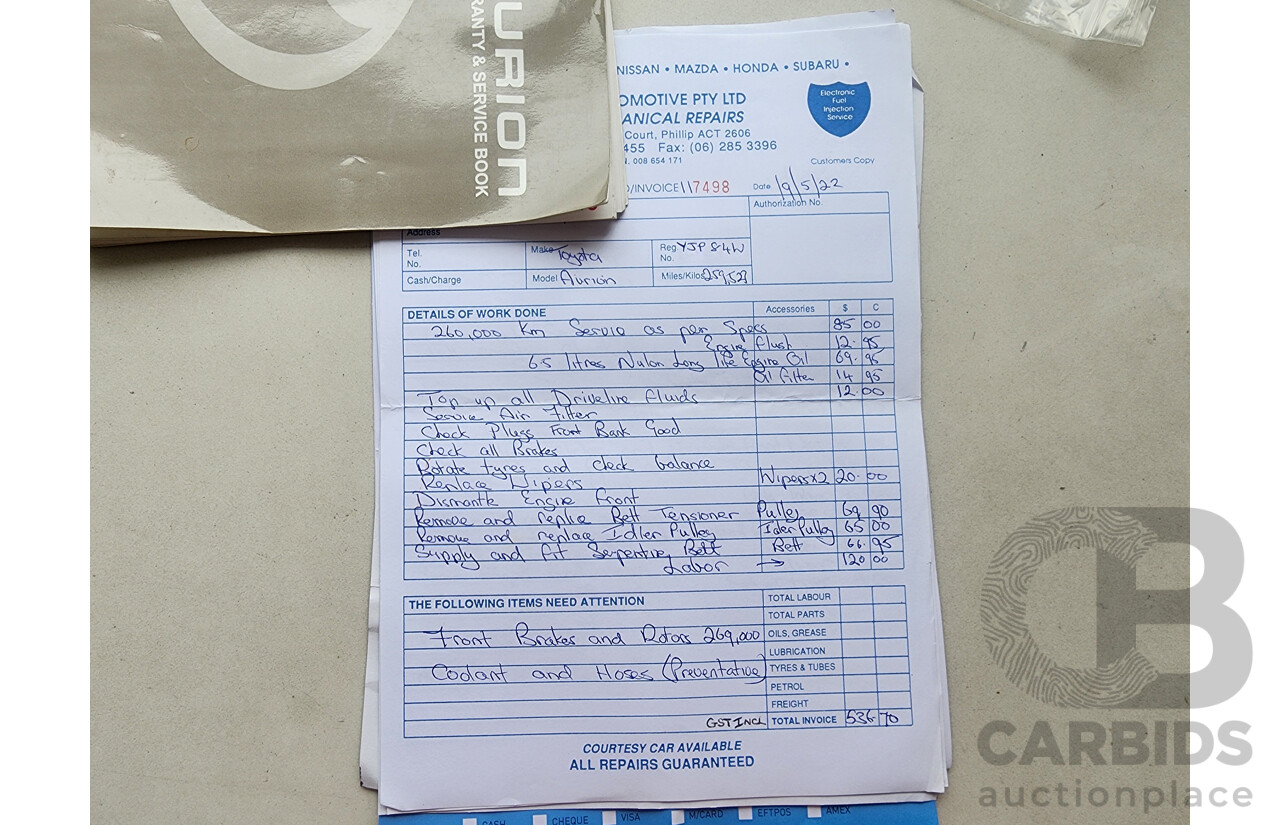 URION
RANTY & SERVICE BOOK
NISSAN • MAZDA • HONDA • SUBARU •
OMOTIVE PTY LTD
ANICAL REPAIRS
Court, Phillip ACT 2606
455 Fax: (06) 285 3396
008 654 171
Electronic
Fuel
Injection
Service
Customers Copy
/INVOICE 117498
Date 19/5/22
Authorization No.
Address
Tel.
No.
Make Toyota
Reg YJP 84W
No.
Cash/Charge
Model Aurion
Miles/Kilos 259,523
DETAILS OF WORK DONE Accessories $ C
260,000 Km Service as per Specs 85 00
Engine flush 12.95
6.5 litres Nulon Long life Engine Oil 69.95
Oil filter 14 95
Top up all Driveline fluids 12.00
Service Air Filter
Check Plugs Front Bank Good
Check all Brakes
Rotate tyres and check balance
Replace Wipers Wipers x2 20.00
Dismantle Engine Front
Remove and replace Belt Tensioner Pulley 69 90
Remove and replace Idler Pulley Idler Pulley 65 00
Supply and fit Serpentine Belt Belt 66.95
Labor → 120 00
THE FOLLOWING ITEMS NEED ATTENTION
TOTAL LABOUR
TOTAL PARTS
Front Brakes and Rotors 269,000
OILS, GREASE
LUBRICATION
Coolant and Hoses (Preventative)
TYRES & TUBES
PETROL
FREIGHT
GST INCL TOTAL INVOICE 536 70
COURTESY CAR AVAILABLE
ALL REPAIRS GUARANTEED
CASH CHEQUE VISA M/CARD EFTPOS AMEX
CB
CARBIDS
auctionplace